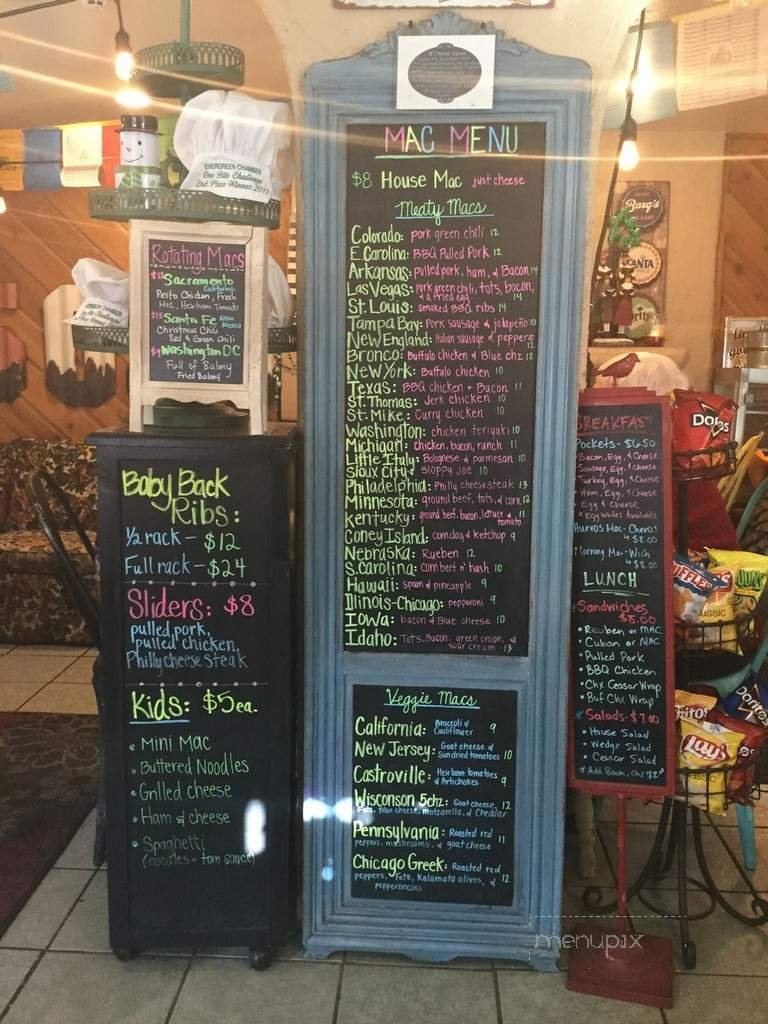 EVERGREEN CHAMBER
One Bite Challenge
2nd Place Winner 2017
Rotating Macs
Sacramento
California
Pesto Chicken, Fresh
Moz, Heirloom Tomato
Santa Fe New Mexico
Christmas Chili
Red & Green Chili
Washington DC
Full of Balony
Fried Balony
Baby Back
Ribs:
1/2 rack - $12
Full rack - $24
Sliders: $8
pulled pork,
pulled chicken,
Philly cheese steak
Kids: $5 ea.
Mini Mac
Buttered Noodles
Grilled cheese
Ham & cheese
Spaghetti
(noodles + tom sauce)
MAC MENU
$8 House Mac just cheese
Meaty Macs
Colorado: pork green chili 12
E.Carolina: BBQ Pulled Pork 12
Arkansas: pulled pork, ham, & Bacon 14
Las Vegas: pork green chili, tots, bacon,
& a fried egg 14
St. Louis: smoked BBQ ribs 14
Tampa Bay: Pork sausage & jalapeño 10
New England: Italian sausage & peppers 12
Bronco: Buffalo chicken & Blue chz 12
New York: Buffalo chicken 10
Texas: BBQ chicken + Bacon 11
St. Thomas: Jerk chicken 10
St. Mike: Curry chicken 10
Washington: chicken teriyaki 10
Michigan: chicken, bacon, ranch 11
Little Italy: Bolognese & parmesan 10
Sioux City: sloppy Joe 10
Philadelphia: Philly cheesesteak 13
Minnesota: ground beef, tots, & corn 12
Kentucky: ground beef, bacon, lettuce & tomato 11
Coney Island: corndog & ketchup 9
Nebraska: Rueben 12
S.Carolina: corn beef n' hash 10
Hawaii: spam & pineapple 9
Illinois-Chicago: pepperoni 9
Iowa: bacon & Blue cheese 10
Idaho: Tots, Bacon, green onion, &
sour cream 13
Veggie Macs
California: Broccoli & Cauliflower 9
New Jersey: Goat cheese & Sundried tomatoes 10
Castroville: Heirloom tomatoes & Artichokes 9
Wisconson 5chz: Goat cheese, 12
Feta, Blue cheese, motzarella, & Cheddar
Pennsylvania: Roasted red 11
peppers, mushrooms, & goat cheese
Chicago Greek: Roasted red
peppers, Feta, Kalamata olives, & 12
pepperoncini
Barg's
BREAKFAST
Pockets - $6.50
Bacon, Egg, & Cheese
Sausage, Egg, & Cheese
Turkey, Egg, & Cheese
Ham, Egg, & Cheese
Egg & Cheese
* Egg Whites Available
Huevos Mac-Cheros
$8.00
Morning Mac-Wich
$8.00
LUNCH
Sandwiches
$8.00
Reuben or MAC
Cuban or MAC
Pulled Pork
BBQ Chicken
Chx Ceasar Wrap
Buf Chx Wrap
Salads - $7.00
House Salad
Wedge Salad
Ceasar Salad
* Add Bacon, Chx $2
Doritos
RUFFLES
CLASSIC
Fritos
Lay's
Doritos
menupix